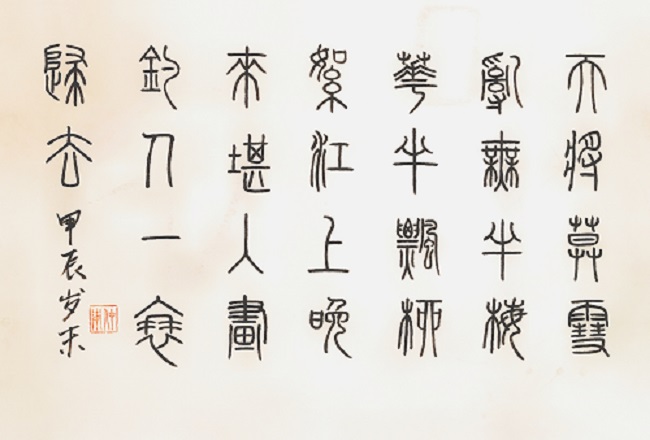 天將莫雪
亂無半梅
華半飄柳
絮江上晚
來堪人畫
釣刀一蓑
歸去
甲辰岁末